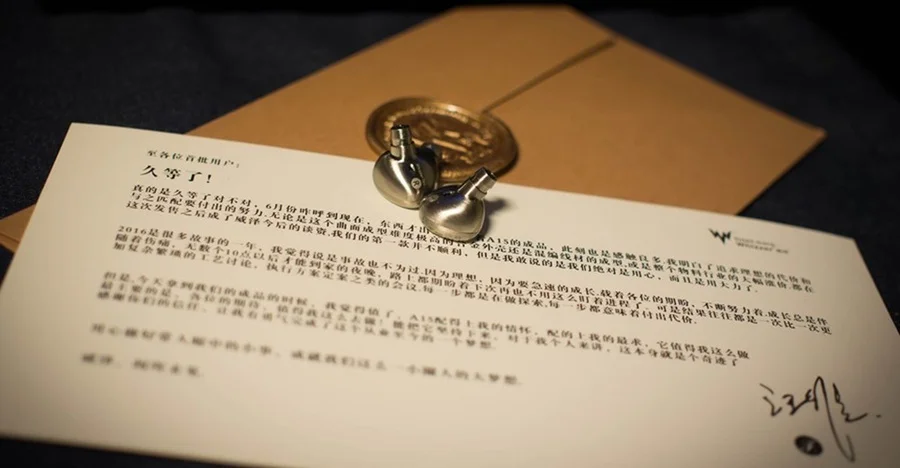 至各位首批用户:
久等了!
真的是久等了对不对, 6月份咋呼到现在, 东西才出 A15的成品, 此刻也是感触良多.我明白了追求理想的代价和
与之匹配要付出的努力.无论是这个曲面成型难度极高的 外壳还是混编线材的成型,或是整个物料行业的大幅涨价.都在
这次发售之后成了威泽今后的谈资.我们的第一款并不顺利, 但是我敢说的是我们绝对是用心, 而且是用大力了.
2016是很多故事的一年, 我觉得说是事故也不为过.因为理想, 因为要急速的成长.载着各位的期盼, 不断努力着.成长总是伴
随着伤痛, 无数个10点以后才能到家的夜晚, 路上都期盼着下次再也不用这么盯着进程了, 可是结果往往都是一次比一次更
加复杂繁琐的工艺讨论, 执行方案定案之类的会议.每一步都是在做探索,每一步都意味着付出代价.
但是,今天拿到我们的成品的时候, 我觉得值了, A15配得上我的情怀, 配的上我的最求, 它值得我这么做
最主要的是, 各位的期待, 值得我这么去做!能把它坚持下来, 对于我个人来讲, 这本身就是个奇迹了
感谢你们的信任, 让我有勇气完成了这个从业至今的一个梦想.
用心做好带头 中的小事, 成就我们这么一小撮人的大梦想.